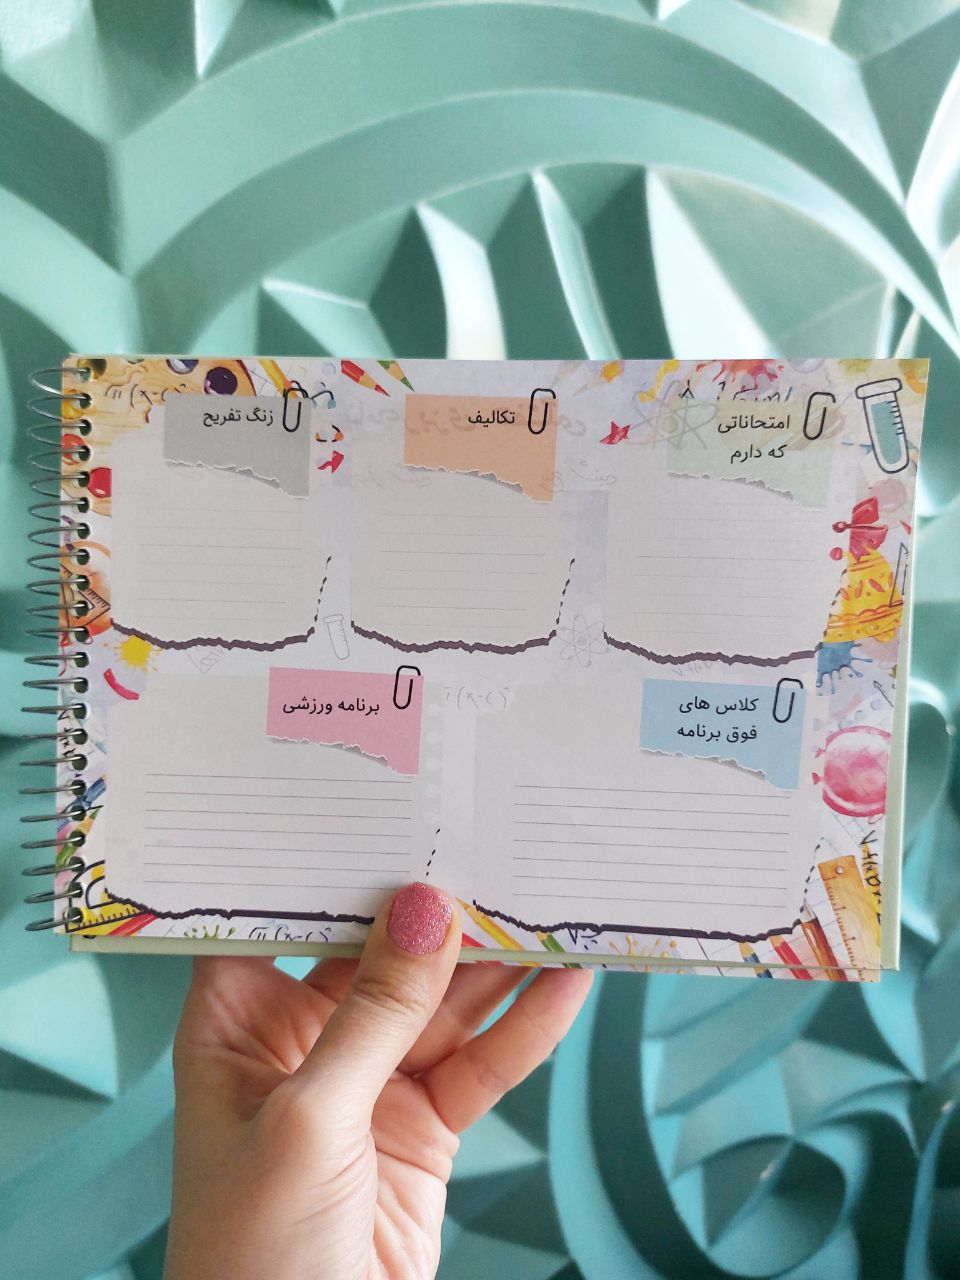 امتحاناتی
که دارم
تکالیف
زنگ تفریح
کلاس های
فوق برنامه
برنامه ورزشی